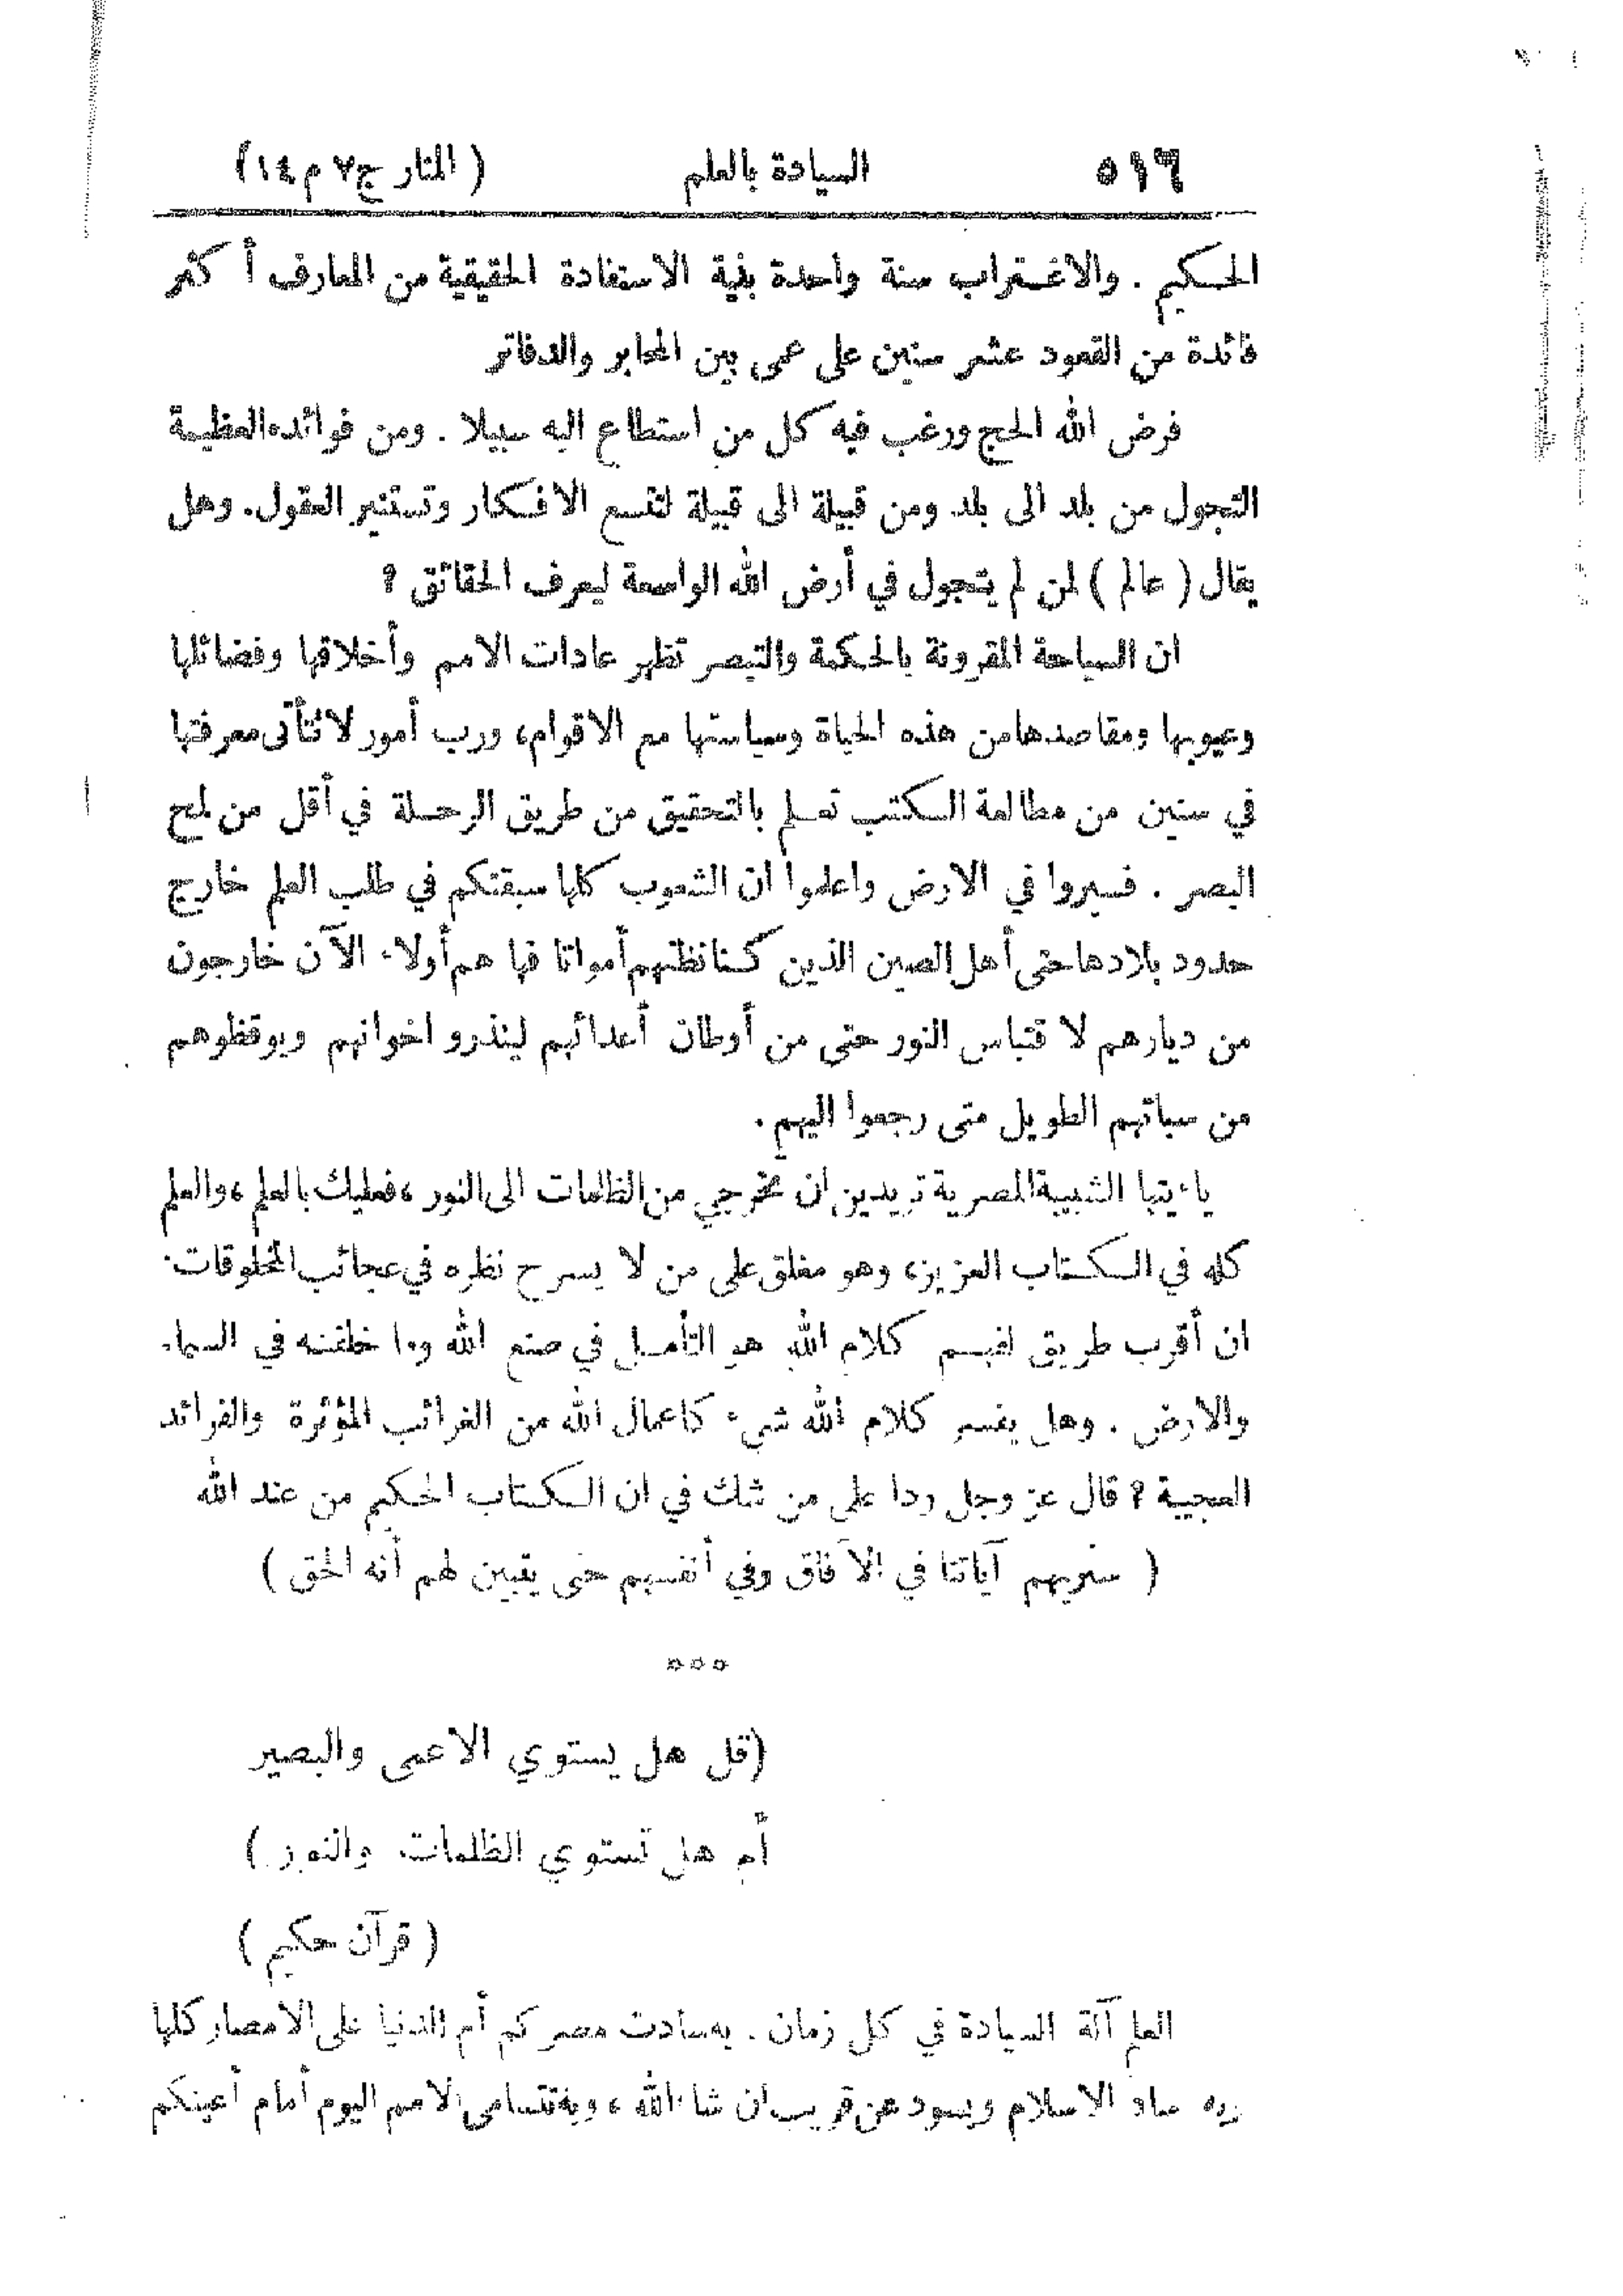 ٥١٦ السيادة بالعلم (المنار ج٧ م١٤)
الحكيم . والاغتراب سنة واحدة بنية الاستفادة الحقيقية من المعارف أكثر
فائدة من القعود عشر سنين على عمى بين المحابر والدفاتر
فرض الله الحج ورغب فيه كل من استطاع اليه سبيلا . ومن فوائده العظيمة
التجول من بلد الى بلد ومن قبيلة الى قبيلة لتتسع الافكار وتستنير العقول. وهل
يقال ( عالم ) لمن لم يتجول في أرض الله الواسعة ليعرف الحقائق ؟
ان السياحة المقرونة بالحكمة والتبصر تظهر عادات الامم وأخلاقها وفضائلها
وعيوبها ومقاصدها من هذه الحياة وسياستها مع الاقوام، ورب أمور لا تتأتى معرفتها
في سنين من مطالعة الكتب تعلم بالتحقيق من طريق الرحلة في أقل من لمح
البصر . فسيروا في الارض واعلموا ان الشعوب كلها سبقتكم في طلب العلم خارج
حدود بلادها حتى أهل الصين الذين كنا نظنهم أمواتا فها هم أولاء الآن خارجون
من ديارهم لاقتباس النور حتى من أوطان أعدائهم لينذرو اخوانهم ويوقظوهم
من سباتهم الطويل متى رجعوا اليهم.
ياءيتها الشبيبة المصرية تريدين ان تخرجي من الظلمات الى النور، فعليك بالعلم، والعلم
كله في الكتاب العزيز، وهو مغلق على من لا يسرح نظره في عجائب المخلوقات.
ان أقرب طريق لفهم كلام الله هو التأمل في صنع الله وما خلقته في السماء
والارض . وهل يفسر كلام الله شيء كاعمال الله من الغرائب المؤثرة والفرائد
العجيبة ؟ قال عز وجل ردا على من شك في ان الكتاب الحكيم من عند الله
( سنريهم آياتنا في الآفاق وفي أنفسهم حتى يتبين لهم أنه الحق )
***
(قل هل يستوي الاعمى والبصير
أم هل تستوي الظلمات والنور )
( قرآن حكيم )
العلم آلة السيادة في كل زمان . به سادت مصركم أم الدنيا على الامصار كلها
وبه ساد الاسلام ويسود عن قريب ان شاء الله، وبه تتسامى الامم اليوم أمام أعينكم